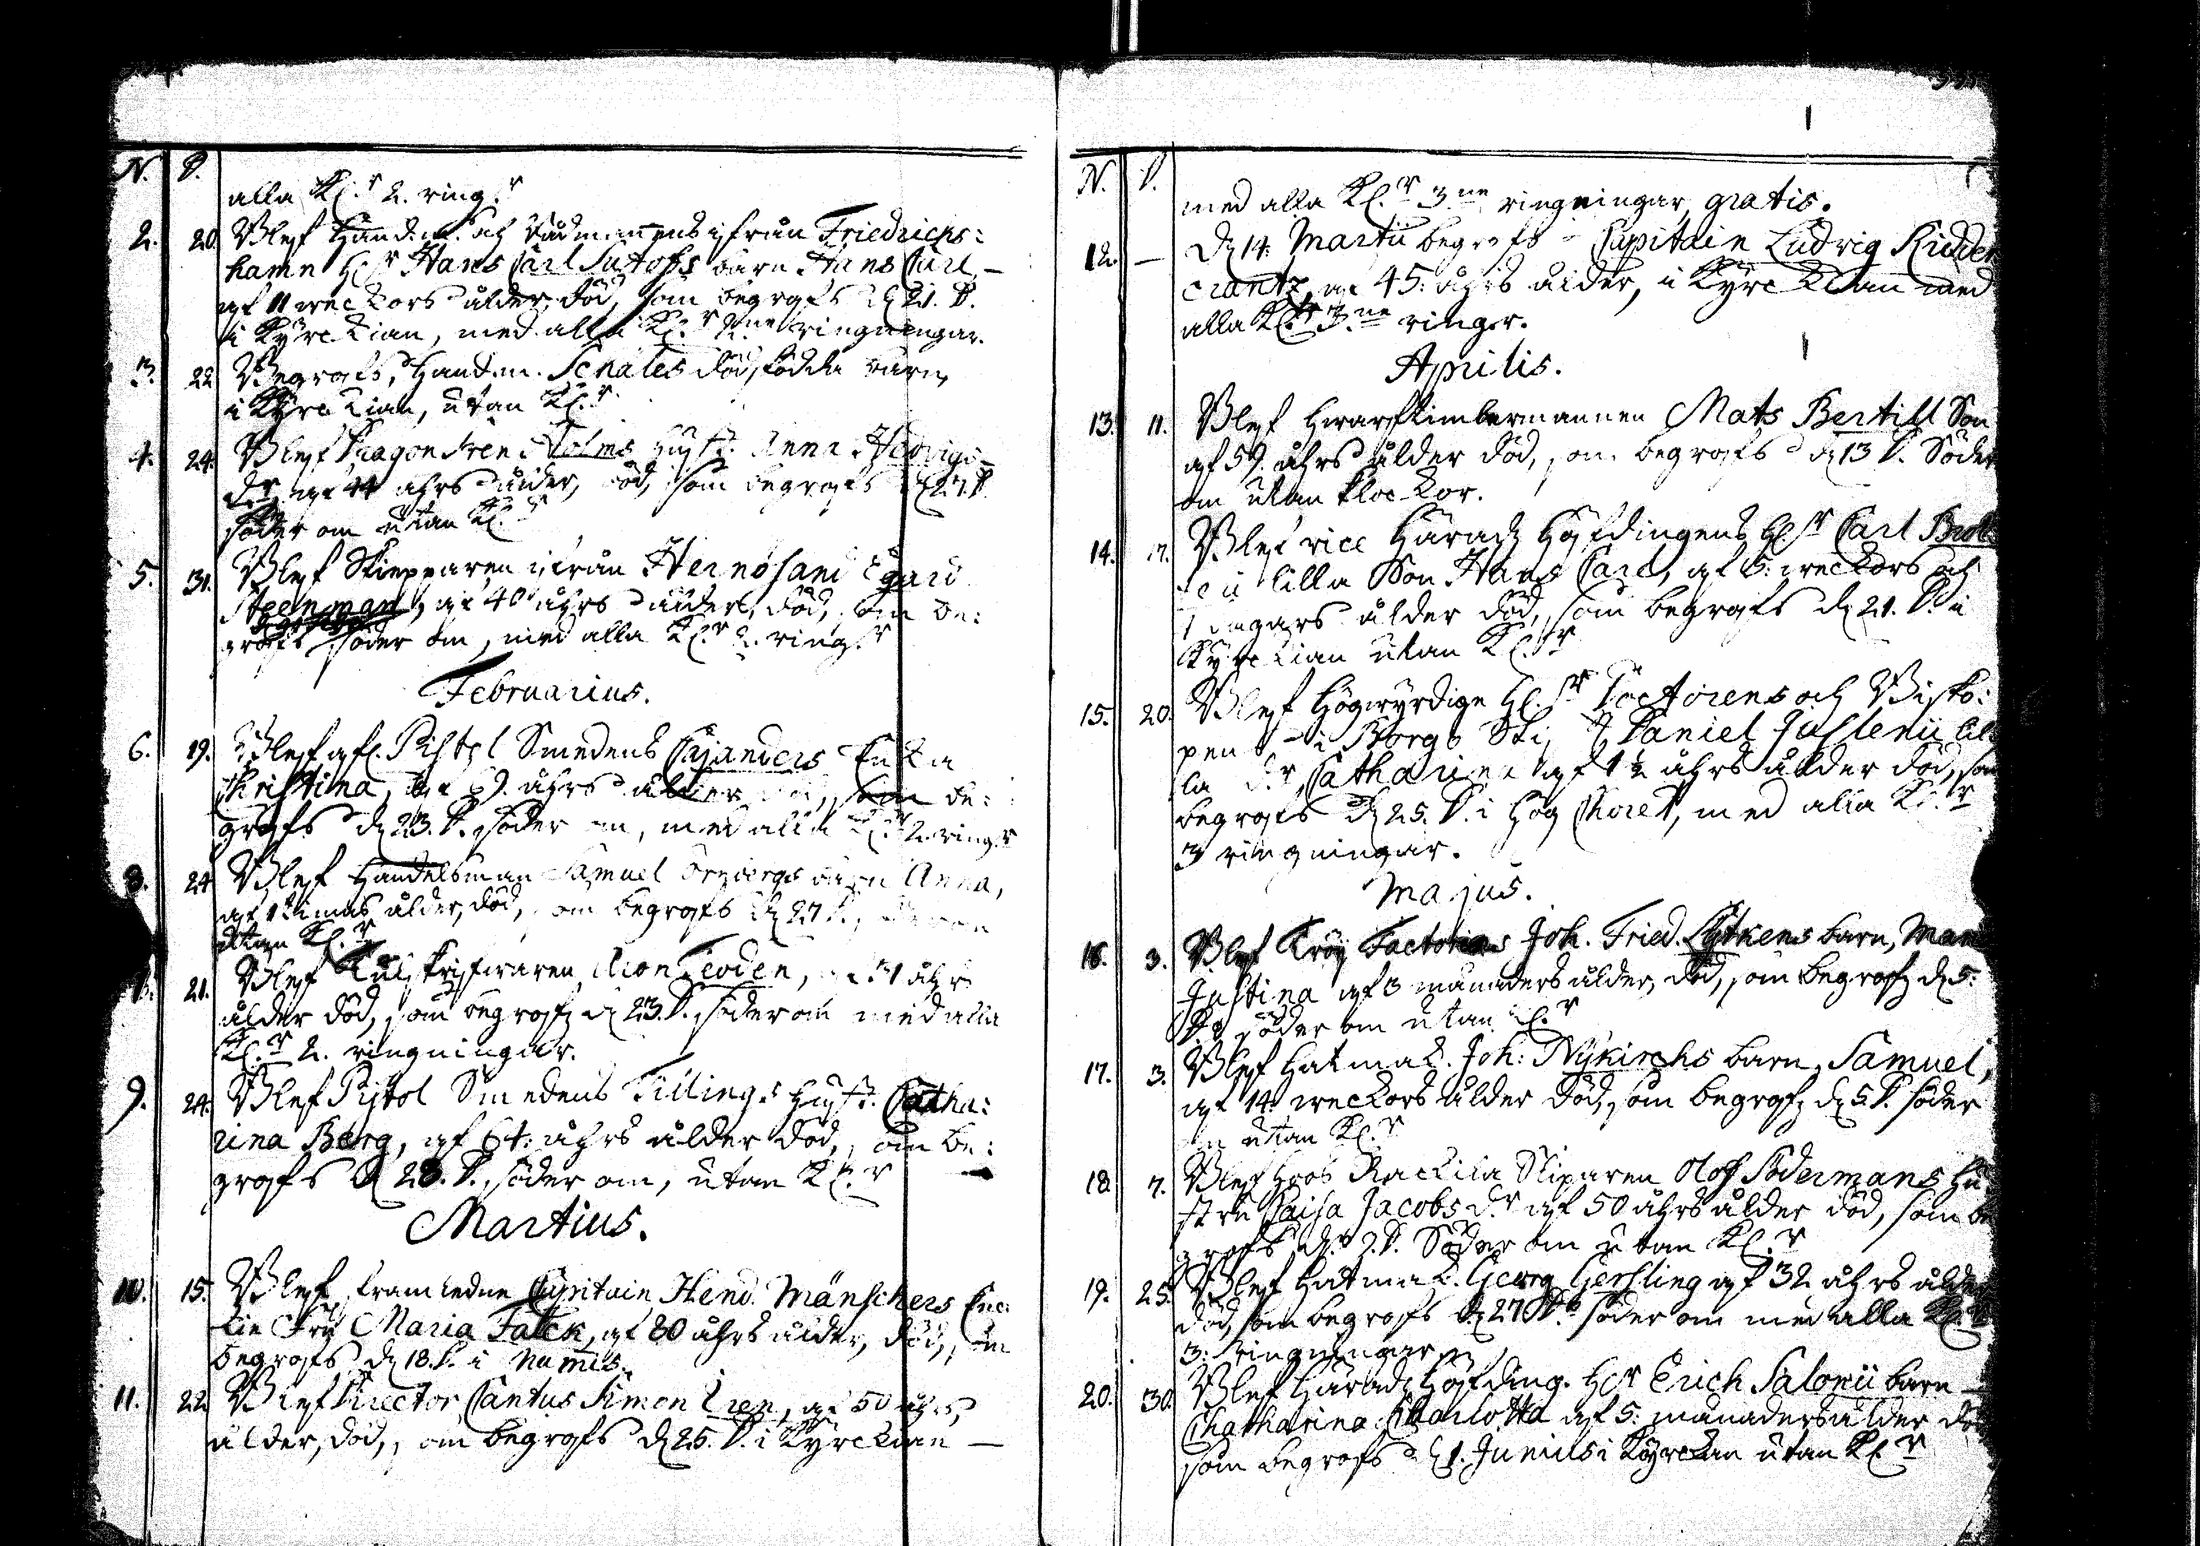 N. D.
alla Kl.r 2. ring.r
2. 20. Blef Hand.m. och Rådmannens ifrån Friedrichs:
hamn H:r Hans Carl Sutofs barn Hans Carl
af 11 weckors ålder död, som begrofs d 21. D.
i Kyrckian, med alla Kl.r 2.ne ringningar.
3. 22 Begrofs, Handm. Schales dödfödda barn
i Kyrckian, utan Kl.r
4. 24. Blef Dragon Holms hust. Anna Hedvigs
d.r af 44 åhrs ålder, död, som begrofs d 27 D.
söder om utan Kl.r
5. 31. Blef Skiepparen ifrån Hernösand
Steenman, af 40 åhrs ålder, död, som be:
grofs söder om, med alla Kl.r 2. ring.r
Februarius.
6. 19. Blef afl. Pistol Smedens Cajanders Enka
Christina, af 69. åhrs ålder död, som be:
grofs d 23. D. söder om, med alla Kl.r 2. ring.r
8. 24 Blef Handelsman Samuel barn Anna,
af ålder, död, som begrofs d 27 D.,
utan Kl.r
21. Blef Tullskrifwaren, af 31 åhrs
ålder död, som begrofs d 23. D. söder om med alla
Kl.r 2. ringningar.
9. 24. Blef Pistol Smedens Tillings hust. Catha:
rina Berg, af 64. åhrs ålder död, som be:
grofs d 28. D. söder om, utan Kl.r
Martius.
10. 15. Blef framledne Capitain Hend. Mänschers Enc:
kia Fru Maria Falck, af 80 åhrs ålder, död, som
begrofs d 18. D. i Numis.
11. 22 Blef Director Cantus Simon, af 50 åhrs
ålder, död, som begrofs d 25. D. i Kyrckian
N. D.
med alla Kl.r 3.ne ringningar, gratis.
12. D 14. Martii begrofs Capitain Ludvig Ridder
crantz, af 45. åhrs ålder, i Kyrckian med
alla Kl.r 3.ne ring.r.
Aprilis.
13. 11. Blef Hwarftimbermannen Mats Bertill Son
af 59. åhrs ålder död, som begrofs d 13 D. Söder
om utan klockor.
14. 17. Blef vice Häradz Höfdingens H:r Carl
lilla Son Hans Carl, af 6. weckors och
1 dagars ålder död, som begrofs d 21. D. i
Kyrckian utan Kl.r
15. 20. Blef Högwyrdige H:r Doctorens och Bisko:
pens i Borgo D Daniel Juslenii lil
la d.r Catharina af 1½ åhrs ålder död, som
begrofs d 25. D. i Hög Choret, med alla Kl.r
3 ringningar.
Majus.
16. 3. Blef Factorns Joh. Fried. Lytkens barn, Maria
Justina af 3 månaders ålder, död, som begrofs d 5.
D. söder om utan Kl.r
17. 3. Blef Hatmak. Joh: Nykirchs barn, Samuel,
af 14 weckors ålder död, som begrofs d 5 D. söder
om utan Kl.r
18. 7. Blef Olof Södermans hu
stru Caisa Jacobs d.r af 50 åhrs ålder död, som be
grofs d 9. D. Söder om utan Kl.r
19. 25. Blef Hatmak. Georg Gersling af 32 åhrs ålder
död, som begrofs d 27 D. söder om med alla Kl.r
3. ringningar.
20. 30. Blef Häradz Höfding. H:r Erich Salonii barn
Chatharina Charlotta af 5. månaders ålder död
som begrofs d 1. Junius i Kyrckian utan Kl.r